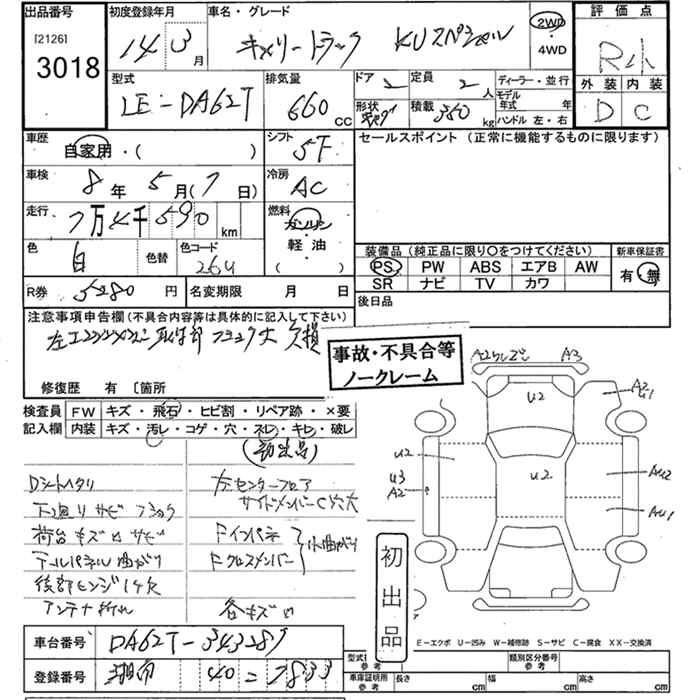 出品番号
[2126]
3018
初度登録年月
14 年 3 月
車名・グレード
キャリートラック KUスペシャル
2WD
・
4WD
評価点
R小
外装 内装
D C
型式
LE-DA62T
排気量
660 cc
ドア 2
定員 2 人
形状
積載 350 kg
ディーラー・並行
モデル年式 年
ハンドル 左・右
車歴
自家用・( )
シフト
5F
車検
8年5月(7日)
冷房
AC
走行
7万 千590 km
燃料
ガソリン
・
軽油
( )
色
白
色替
色コード
26U
R券 5280 円
名変期限 月 日
セールスポイント (正常に機能するものに限ります)
装備品 (純正品に限り○をつけてください)
PS PW ABS エアB AW
SR ナビ TV カワ
新車保証書
有・無
後日品
注意事項申告欄(不具合内容等は具体的に記入して下さい)
左エンジンメンバー取付部 フショク大 欠損
事故・不具合等
ノークレーム
修復歴 有 〔箇所
検査員 FW キズ・飛石・ヒビ割・リペア跡・×要
記入欄 内装 キズ・汚レ・コゲ・穴・スレ・キレ・破レ
(初出品)
Dシートヘタリ
下廻りサビ フショク
荷台キズ凹サビ
テールパネル曲がり
後部ヒンジ1ケ欠
アンテナ
左センターフロア
サイドメンバーC穴大
Fインパネ
Fクロスメンバー
小曲がり
各キズ凹
初出品
A2ワレズミ A3
U2
A2 U1
U2
U3
A2
U2
AU2
AU1
E-エクボ U-凹み W-補修跡 S-サビ C-腐食 XX-交換済
車台番号 DA62T-343287
登録番号 湘南 40 = 2833
型式 参考
類別区分番号 参考
車庫証明用 参考
長さ cm
幅 cm
高さ cm